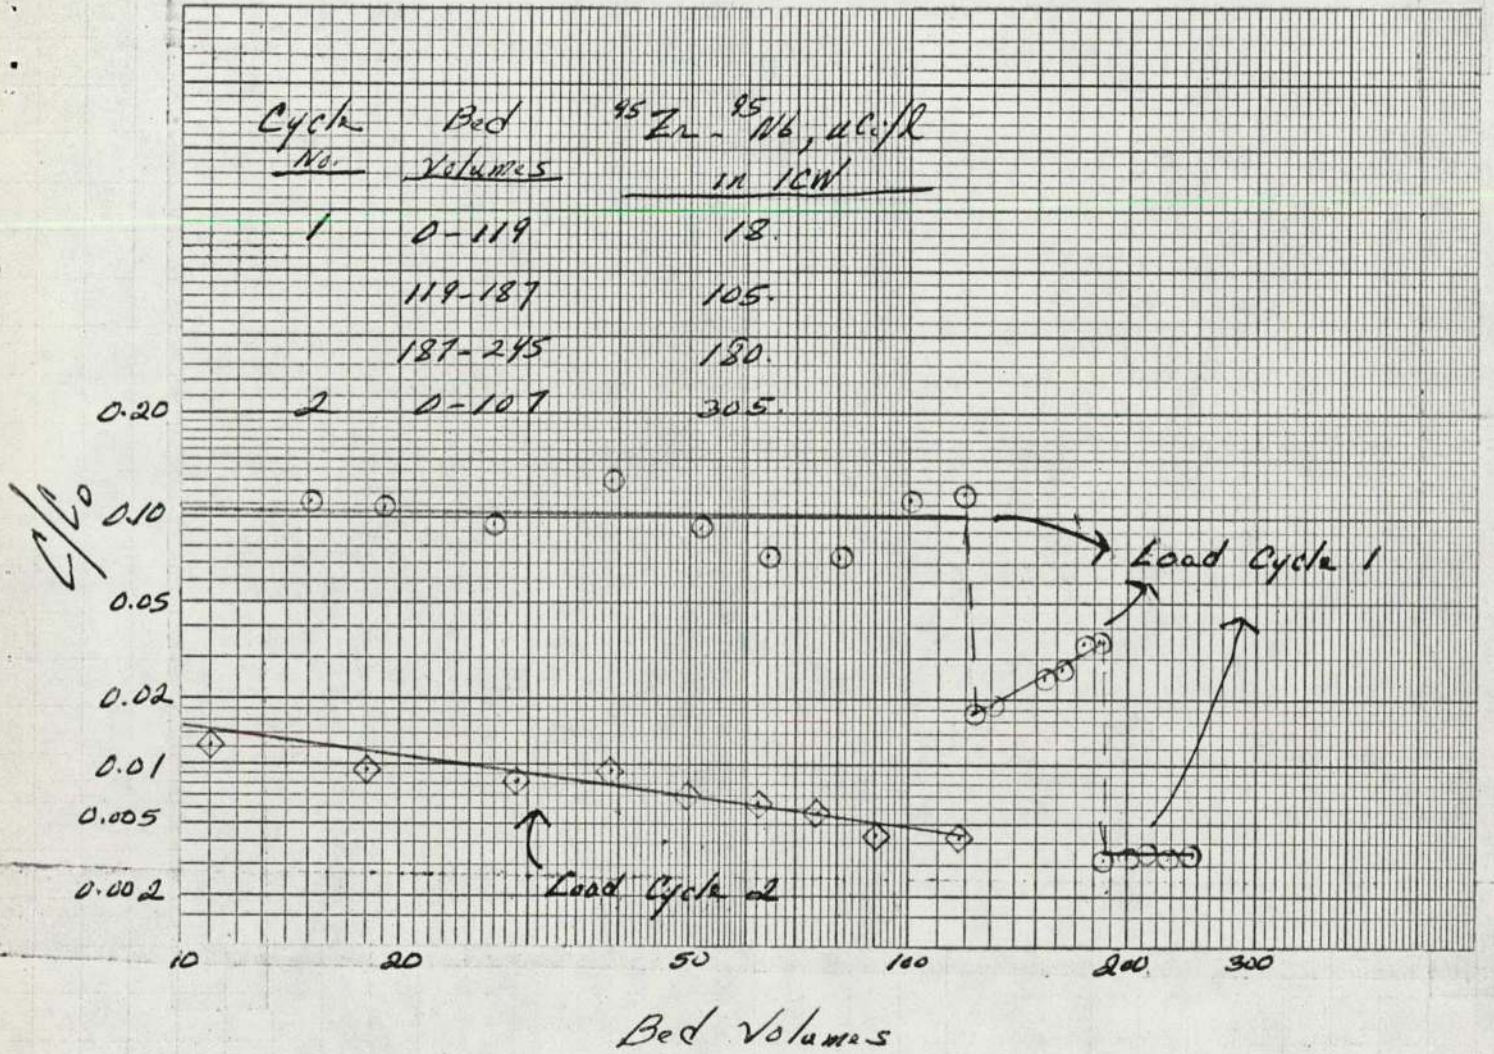 Cycle Bed 95Zr-95Nb, uCi/l
No. Volumes in ICW
1 0-119 18.
119-187 105.
187-245 180.
2 0-107 305.
0.20
0.10
0.05
0.02
0.01
0.005
0.002
C/C₀
Load Cycle 1
Load Cycle 2
10 20 50 100 200 300
Bed Volumes